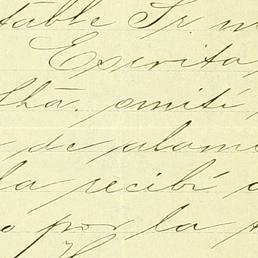 table Sr. m
Escrita,
fha. omití
de alam
la recibí
o por la